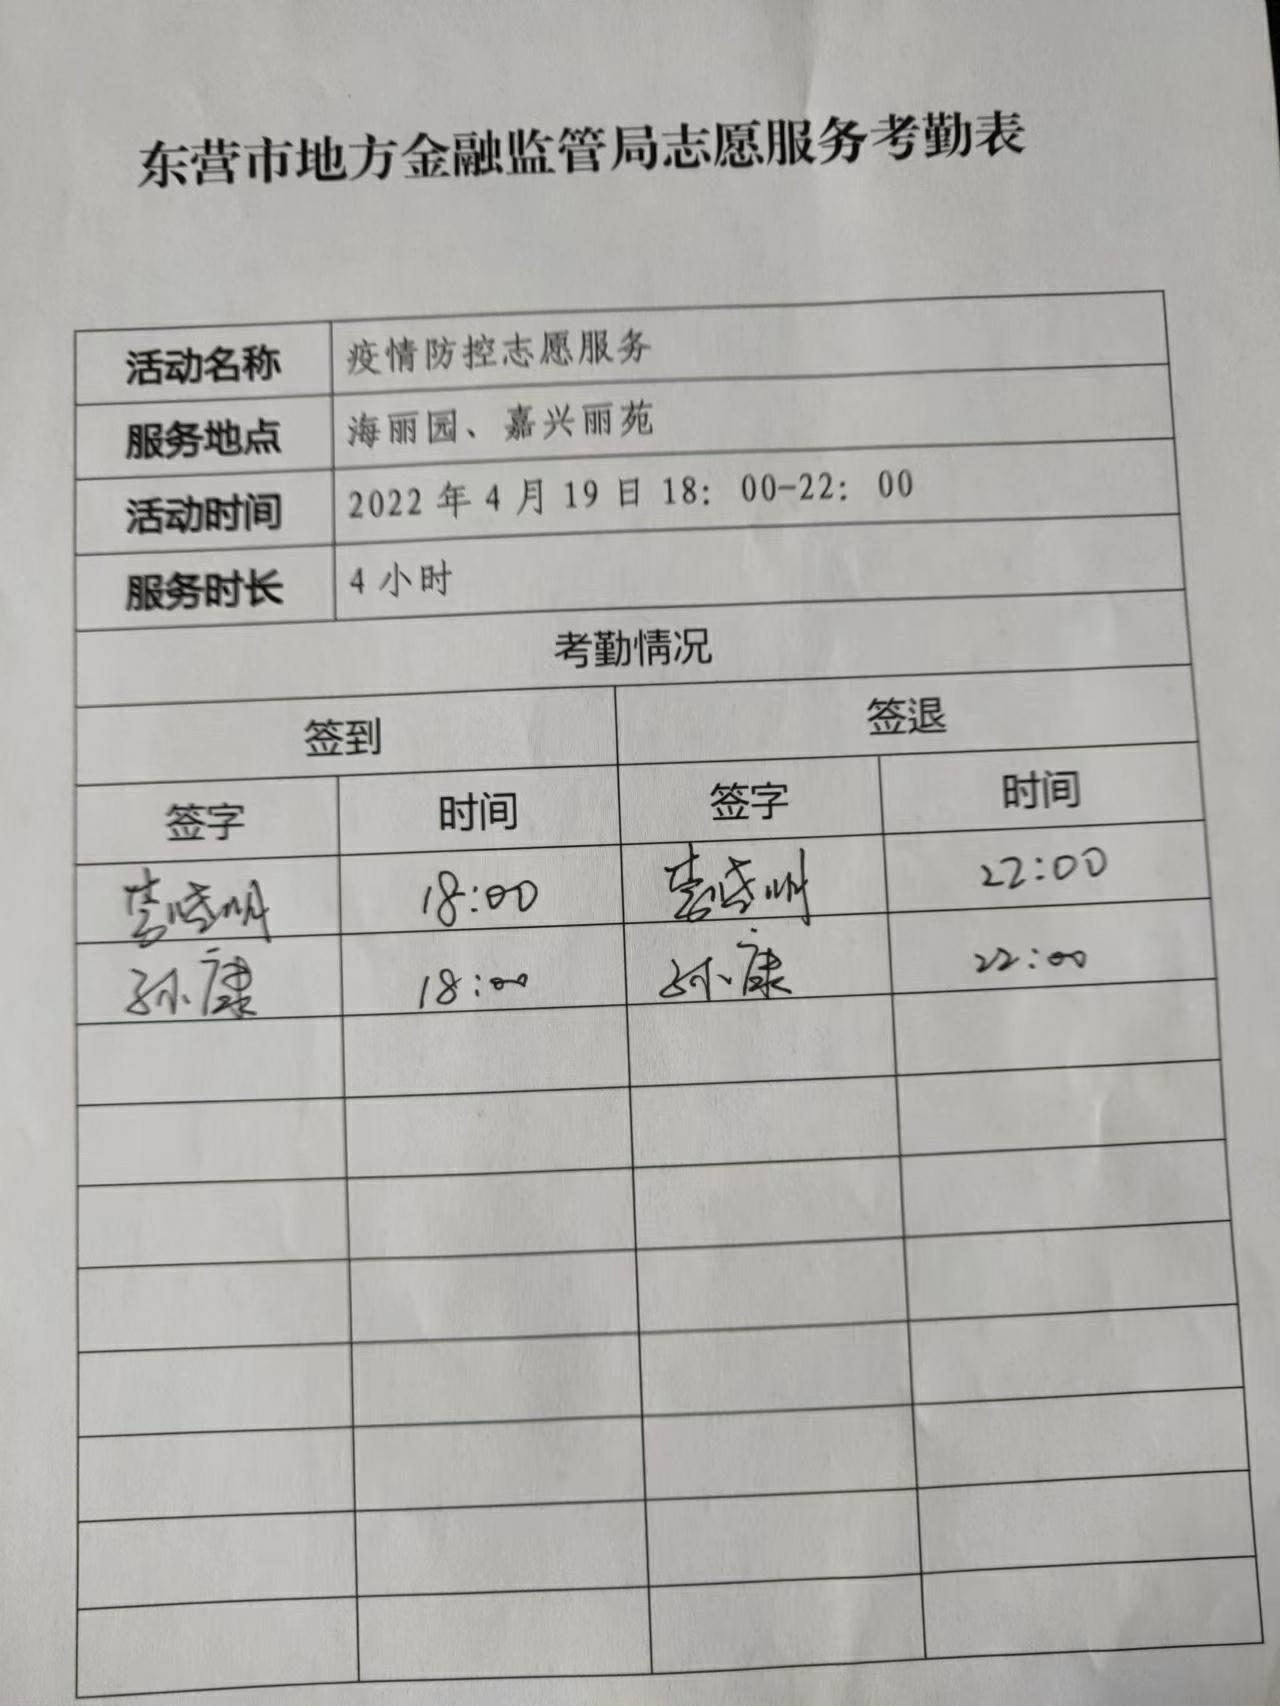 东营市地方金融监管局志愿服务考勤表
活动名称 疫情防控志愿服务
服务地点 海丽园、嘉兴丽苑
活动时间 2022年4月19日18：00-22：00
服务时长 4小时
考勤情况
签到 签退
签字 时间 签字 时间
18:00 22:00
孙康 18:00 孙康 22:00